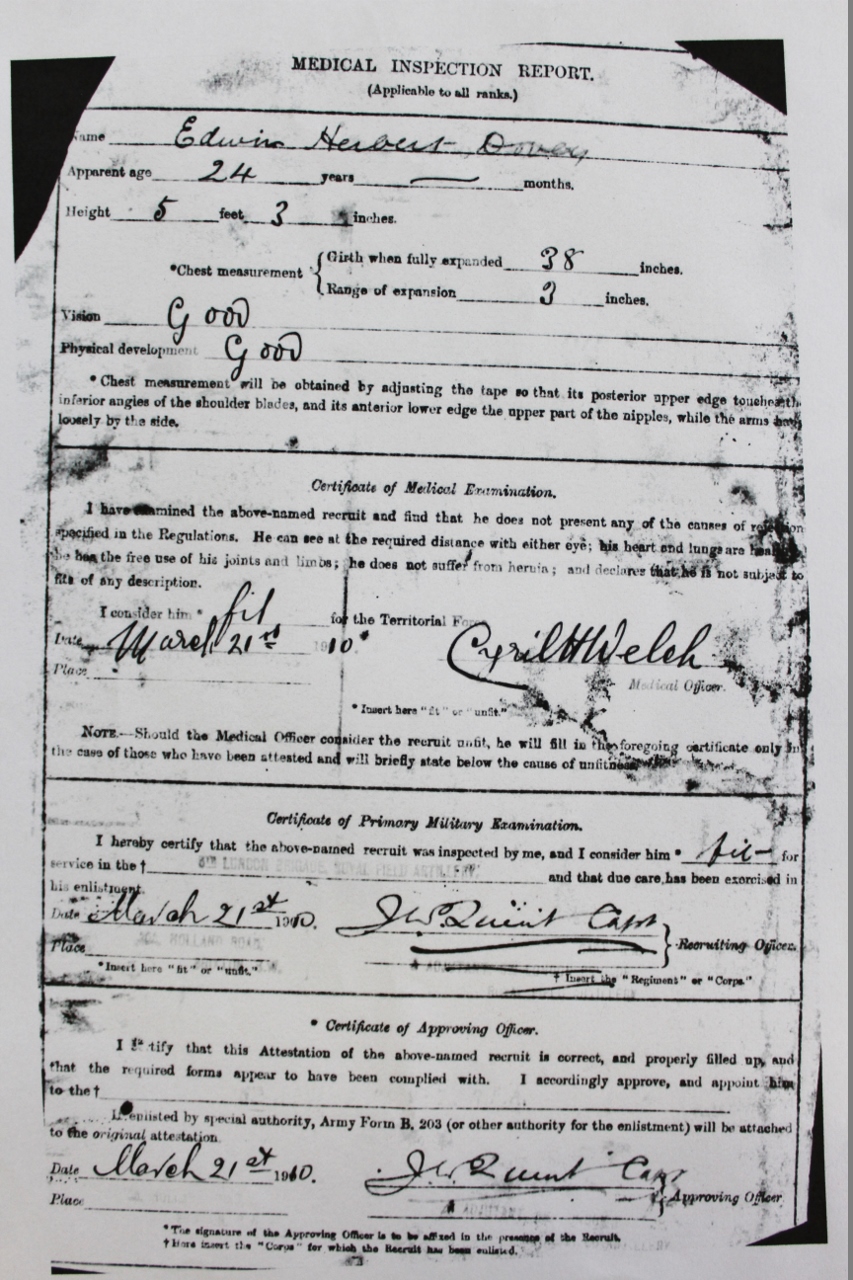 MEDICAL INSPECTION REPORT.
(Applicable to all ranks.)
Name Edwin Herbert Dovey
Apparent age 24 years — months.
Height 5 feet 3 inches.
*Chest measurement { Girth when fully expanded 38 inches.
Range of expansion 3 inches.
Vision Good
Physical development Good
*Chest measurement will be obtained by adjusting the tape so that its posterior upper edge touches th
inferior angles of the shoulder blades, and its anterior lower edge the upper part of the nipples, while the arms hang
loosely by the side.
Certificate of Medical Examination.
I have examined the above-named recruit and find that he does not present any of the causes of rejection
specified in the Regulations. He can see at the required distance with either eye; his heart and lungs are healthy
he has the free use of his joints and limbs; he does not suffer from hernia; and declares that he is not subject to
fits of any description.
I consider him * fit for the Territorial Force
Date March 21st 1910*
Cyril H Welch
Place
Medical Officer.
* Insert here "fit" or "unfit."
NOTE.—Should the Medical Officer consider the recruit unfit, he will fill in the foregoing certificate only in
the case of those who have been attested and will briefly state below the cause of unfitness
Certificate of Primary Military Examination.
I hereby certify that the above-named recruit was inspected by me, and I consider him * fit for
service in the † 6TH LONDON BRIGADE, ROYAL FIELD ARTILLERY and that due care has been exercised in
his enlistment.
Date March 21st 1910. Capt
Place } Recruiting Officer.
*Insert here "fit" or "unfit." † Insert the "Regiment" or "Corps."
* Certificate of Approving Officer.
I tify that this Attestation of the above-named recruit is correct, and properly filled up, and
that the required forms appear to have been complied with. I accordingly approve, and appoint him
to the †
If enlisted by special authority, Army Form B. 203 (or other authority for the enlistment) will be attached
to the original attestation.
Date March 21st 1910. Capt
Place } Approving Officer
*The signature of the Approving Officer is to be affixed in the presence of the Recruit.
† Here insert the "Corps" for which the Recruit has been enlisted.